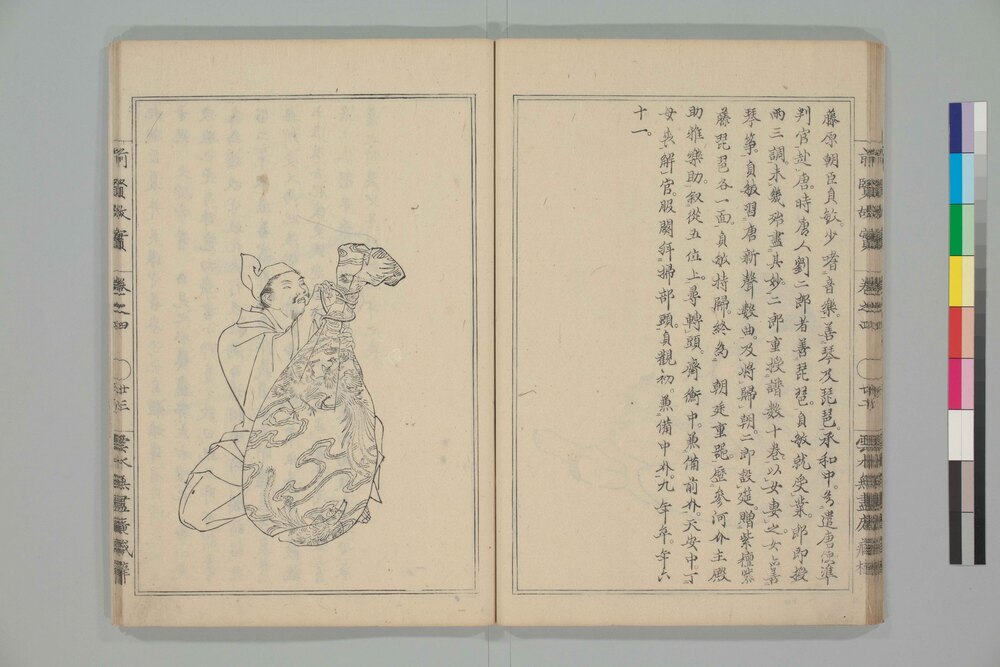 藤原朝臣貞敏。少耆音樂。善琴及琵琶。承和中。為遣唐使準
判官赴唐。時唐人劉二郎者善琵琶。貞敏就受業。郎即授
兩三調。未幾殆盡其妙。二郎重授譜數十卷。以女妻之。女亦善
琴箏。貞敏習唐新聲數曲。及將歸朝。二郎設筵。贈紫檀紫
藤琵琶各一面。貞敏持歸終為 朝廷重器。歷參河介主殿
助雅樂助。叙從五位上。尋轉頭。齊衡中。兼備前介。天安中。丁
母喪解官。服闋拜掃部頭。貞觀初。兼備中介。九年卒。年六
十一。
前賢故實 卷之四
廿三
雲水無盡
前賢故實 卷之四
雲水無盡